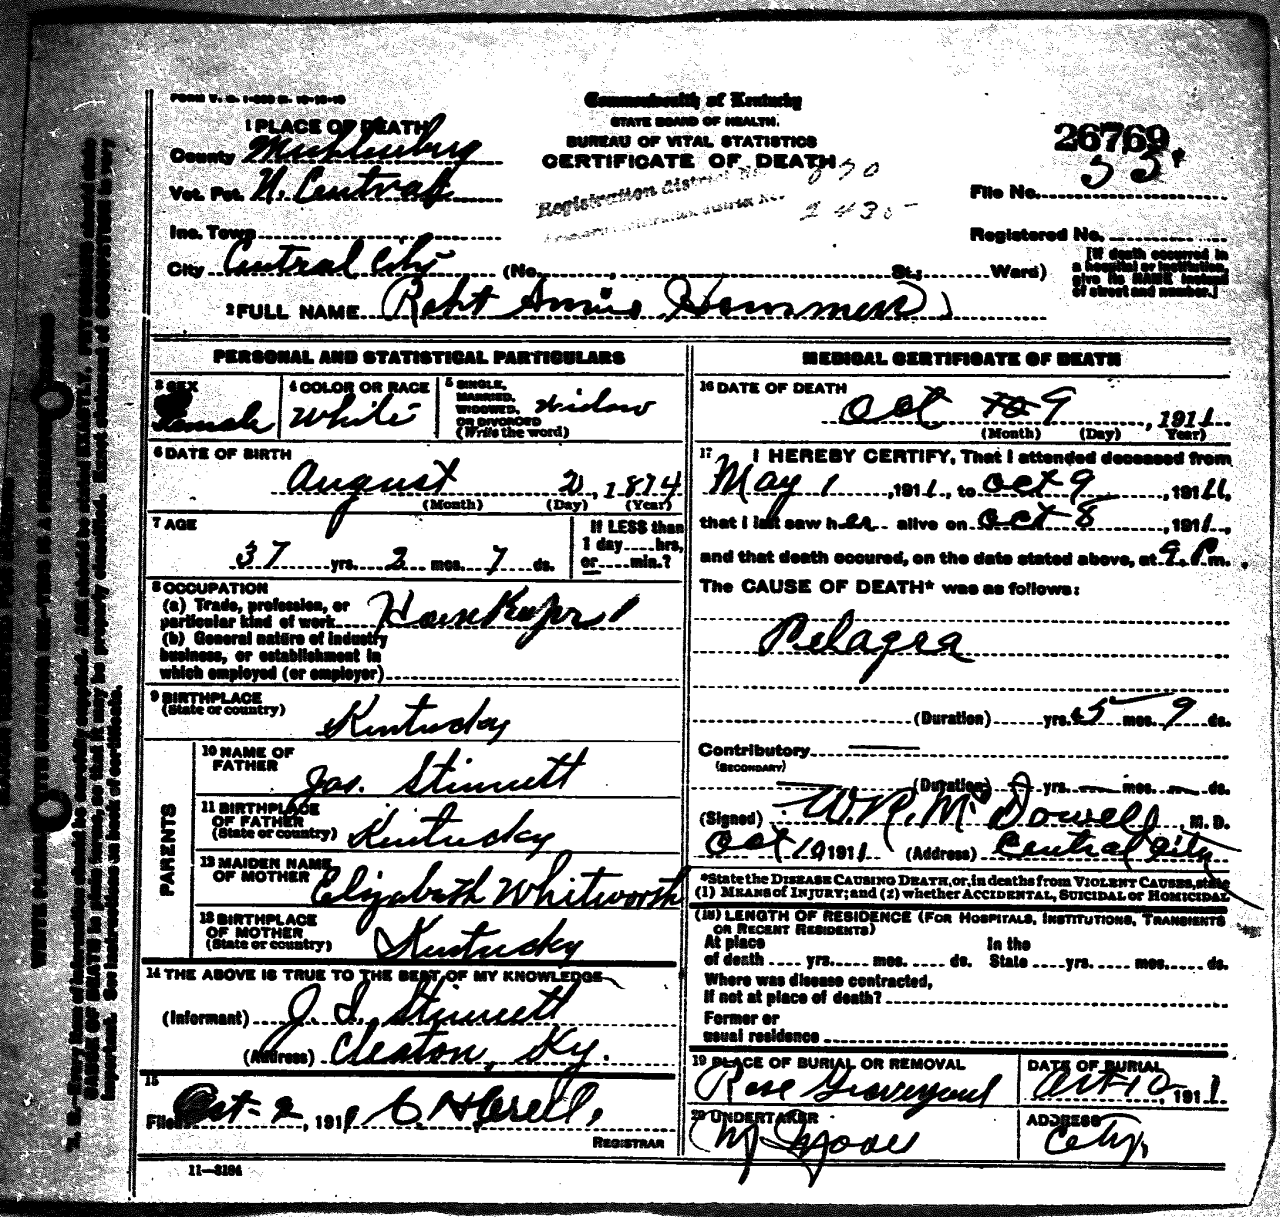 FORM V. S. 1-
Commonwealth of Kentucky
STATE BOARD OF HEALTH.
BUREAU OF VITAL STATISTICS
CERTIFICATE OF DEATH
26769
1 PLACE OF DEATH
County Muhlenburg
Vot. Pct. N. Central
Inc. Town
City Central City (No. , St.; Ward)
Registration District No. 870
2435
File No. 55.
Registered No.
[If death occurred in
a hospital or institution,
give its NAME instead
of street and number.]
2 FULL NAME Annie Hammers
PERSONAL AND STATISTICAL PARTICULARS
3 SEX
Female
4 COLOR OR RACE
White
5 SINGLE,
MARRIED,
WIDOWED,
OR DIVORCED
(Write the word)
Widow
6 DATE OF BIRTH
August 2, 1874
(Month) (Day) (Year)
7 AGE
37 yrs. 2 mos. 7 ds.
If LESS than
1 day hrs,
or min.?
8 OCCUPATION
(a) Trade, profession, or
particular kind of work
(b) General nature of industry
business, or establishment in
which employed (or employer)
9 BIRTHPLACE
(State or country)
Kentucky
PARENTS
10 NAME OF
FATHER
Jas. Stinnett
11 BIRTHPLACE
OF FATHER
(State or country)
Kentucky
12 MAIDEN NAME
OF MOTHER
Elizabeth Whitworth
13 BIRTHPLACE
OF MOTHER
(State or country)
Kentucky
14 THE ABOVE IS TRUE TO THE BEST OF MY KNOWLEDGE
(Informant) Stinnett
(Address) Cleaton, Ky.
15
Filed Oct-2, 191
REGISTRAR
11—3184
MEDICAL CERTIFICATE OF DEATH
16 DATE OF DEATH
Oct 9, 1911
(Month) (Day) Year)
17 I HEREBY CERTIFY, That I attended deceased from
May 1, 1911, to Oct 9, 1911,
that I last saw her alive on Oct 8, 1911,
and that death occured, on the date stated above, at 9 P.m.
The CAUSE OF DEATH* was as follows:
Pelagra
(Duration) yrs. 5 mos. 9 ds.
Contributory
(SECONDARY)
(Duration) yrs. mos. ds.
(Signed) W.R. McDowell, M. D.
Oct 10 1911 (Address) Central City
*State the DISEASE CAUSING DEATH, or, in deaths from VIOLENT CAUSES, state
(1) MEANS of INJURY; and (2) whether ACCIDENTAL, SUICIDAL or HOMICIDAL
(18) LENGTH OF RESIDENCE (FOR HOSPITALS, INSTITUTIONS, TRANSIENTS
OR RECENT RESIDENTS)
At place In the
of death yrs. mos. ds. State yrs. mos. ds.
Where was disease contracted,
If not at place of death?
Former or
usual residence
19 PLACE OF BURIAL OR REMOVAL
Rose Graveyard
DATE OF BURIAL
Oct 10, 1911
20 UNDERTAKER
Moore
ADDRESS
City.